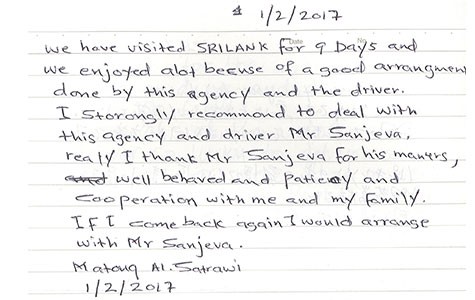 1/2/2017
we have visited SRILANK for 9 Days and
we enjoyed alot becuse of a good arrangment
done by this agency and the driver.
I Storongly recommond to deal with
this agency and driver Mr Sanjeva,
realy I thank Mr Sanjeva for his maners,
well behaved and patiecy and
cooperation with me and my family.
If I come back again I would arrange
with Mr Sanjeva.
Matouq Al.Satrawi
1/2/2017